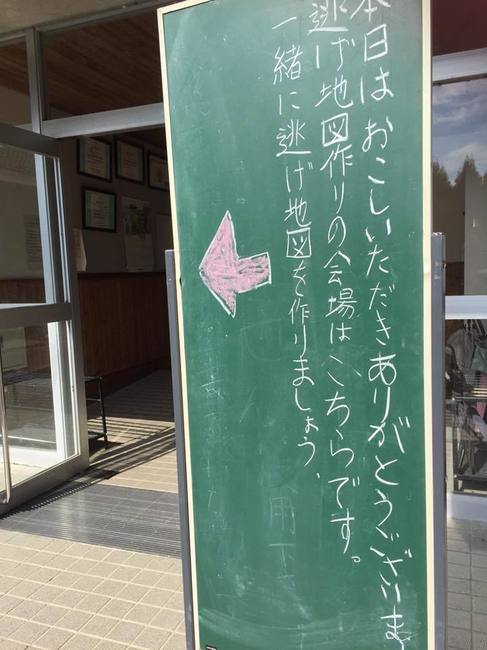 本日はおこしいただきありがとうございま
逃げ地図作りの会場はこちらです。
一緒に逃げ地図を作りましょう、